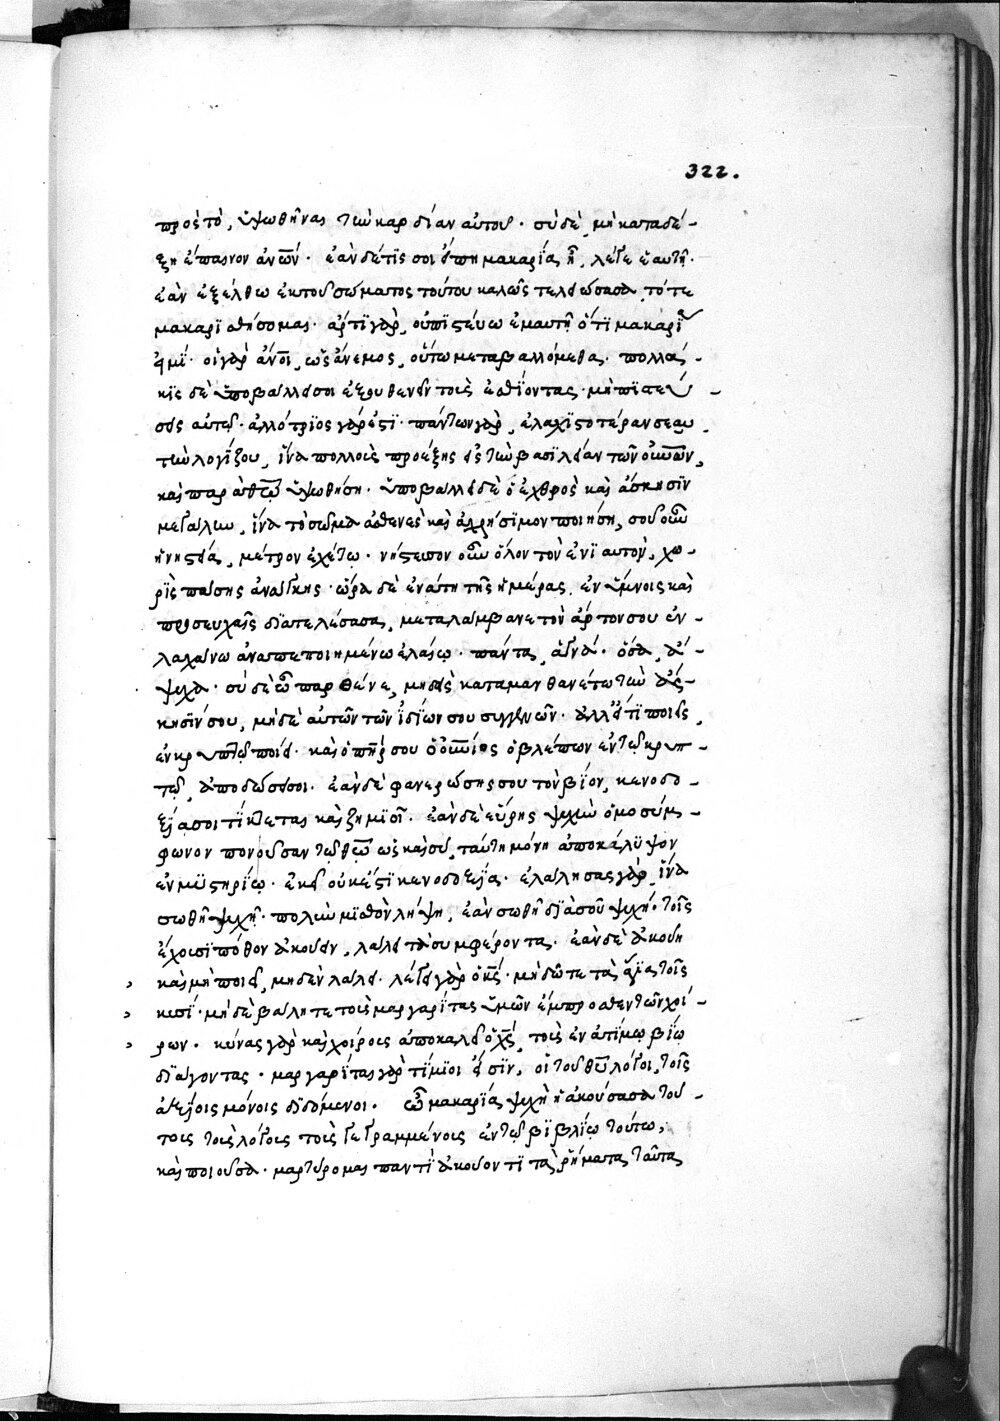 322.
πρὸς τὸ, ὑψωθῆναι τὴν καρδίαν αὐτοῦ· σὺ δὲ, μὴ καταδέ-
ξη ἔπαινον ἀνων· ἐὰν δέ τϊς σοι εἴπη μακαρία εἶ, λέγε ἑαυτῆ·
ἐὰν ἐξέλθω ἐκ τοῦ σώματος τούτου καλῶς τελειώσασα, τότε
μακαρϊσθήσομαι· ἄρτϊ γὰρ, οὐ πϊστεύω ἐμαυτῆ ὅτϊ μακαρία
εἰμϊ· οἱ γὰρ ἄνοι, ὡς ἄνεμος, οὕτω μεταβαλλόμεθα· πολλά-
κϊς δὲ ὑποβάλλει σοι ἐξουθενεῖν τοὺς ἐσθίοντας· μὴ πϊστεύ-
σης αὐτῶ· ἀλλότρϊος γάρ ἐστϊ· πάντων γὰρ, ἐλαχϊστοτέραν σεαυ
τὴν λογίζου, ἵνα πολλοὺς προάξης εἰς τὴν βασϊλείαν τῶν οὐνῶν,
καὶ παρὰ θῶ ὑψωθήση· ὑποβάλλει δὲ ὁ ἐχθρὸς καὶ ἄσκησϊν
μεγάλην, ἵνα τὸ σῶμα ἀσθενὲς καὶ ἀχρήσϊμον ποιήση, σοῦ οὖν
ἡ νηστεία, μέτρον ἐχέτω· νήστευσον οὖν ὅλον τὸν ἐνϊαυτὸν, χω-
ρὶς πάσης ἀνάγκης· ὥρα δὲ ἐνάτη τῆς ἡμέρας, ἐν ὕμνοις καὶ
προσευχαῖς διατελέσασα, μεταλάμβανε τὸν ἄρτον σου ἐν-
λαχάνω ἀναπεποιημένω ἐλαίω· πάντα, ἁγνά· ὅσα, ἄ-
ψυχα· σὺ δὲ ὦ παρθένε, μηδεὶς καταμανθανέτω τὴν ἄσ-
κησϊν σου, μηδὲ αὐτῶν τῶν ἰδίων σου συγγενῶν· ἀλλ' εἴ τϊ ποιεῖς,
ἐν κρυπτῶ ποίει· καὶ ὁ πήρ σου ὁ οὐνϊος ὁ βλέπων ἐν τῶ κρυπ-
τῶ, ἀποδώσει σοι· ἐὰν δὲ φανερώσης σου τὸν βίον, κενοδο-
ξία σοι τίκτεται καὶ ζημϊοῖ· ἐὰν δὲ εὕρης ψυχὴν ὁμοσύμ-
φωνον πονοῦσαν τῶ θῶ ὡς καὶ σὺ, ταύτη μόνη ἀποκάλυψον
ἐν μϋστηρίω· ἐκεῖ οὐκ ἔστϊ κενοδοξία· ἐλάλησας γὰρ, ἵνα
σωθῆ ψυχή· πολὺν μϊσθὸν λήψη, ἐὰν σωθῆ δϊὰ σοῦ ψυχή· τοῖς
ἔχουσϊ πόθον ἀκούειν, λάλει τὰ συμφέροντα· ἐὰν δὲ ἀκούη
καὶ μὴ ποιεῖ, μηδὲν λάλει· λέγει γὰρ ὁ κς· μὴ δῶτε τὰ ἅγϊα τοῖς
κυσϊ· μηδὲ βάλητε τοὺς μαργαρίτας ὑμῶν ἔμπροσθεν τῶν χοί-
ρων· κύνας γὰρ καὶ χοίρους ἀποκαλεῖ ὁ χς, τοὺς ἐν ἀτίμω βίω
δϊάγοντας· μαργαρῖται γὰρ τίμϊοι εἰσϊν, οἱ τοῦ θυ λόγοι, τοῖς
ἀξίοις μόνοις δϊδόμενοι· ὦ μακαρία ψυχὴ ἡ ἀκούσασα τού-
τους τοὺς λόγους τοὺς γεγραμμένους ἐν τῶ βϊβλίω τούτω,
καὶ ποιοῦσα· μαρτύρομαι παντὶ ἀκούοντϊ τὰ ῥήματα ταῦτα